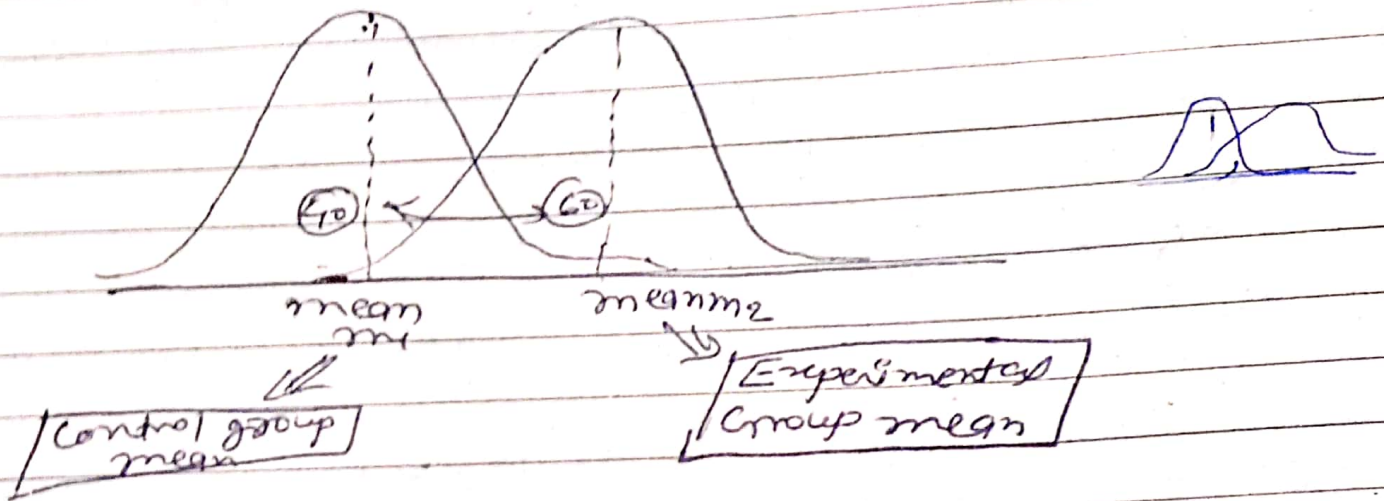 40 60
mean mean m2
m1
Control group
mean
Experimental
Group mean